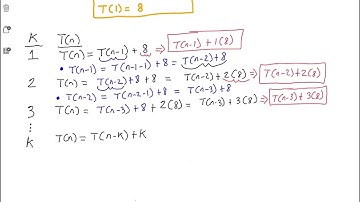 T(1) = 8
K T(n)
1 T(n) = T(n-1) + 8 ⇒ T(n-1) + 1(8)
• T(n-1) = T(n-1-1) + 8 = T(n-2) + 8
2 T(n) = T(n-2) + 8 + 8 = T(n-2) + 2(8) ⇒ T(n-2) + 2(8)
• T(n-2) = T(n-2-1) + 8 = T(n-3) + 8
3 T(n) = T(n-3) + 8 + 2(8) = T(n-3) + 3(8) ⇒ T(n-3) + 3(8)
⋮
K T(n) = T(n-K) + K